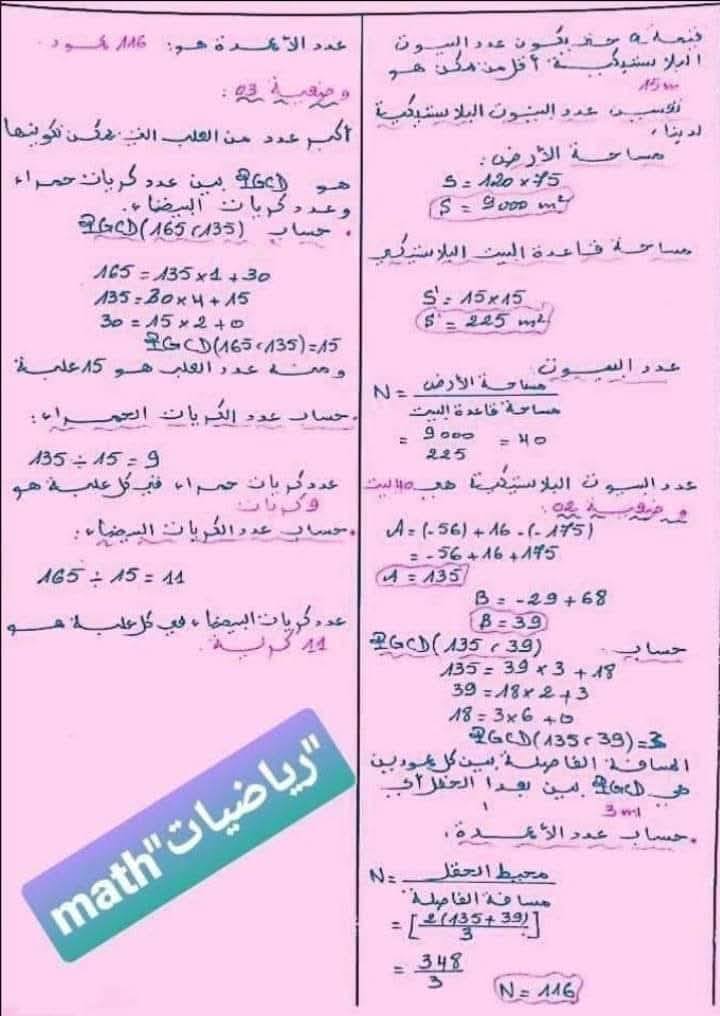 قيمة a حتى يكون عدد البيوت
البلاستيكية أقل ممكن هو
15m
تعيين عدد البيوت البلاستيكية
لدينا،
مساحة الأرض:
S = 120 × 75
S = 9000 m²
مساحة قاعدة البيت البلاستيكي
S' = 15 × 15
S' = 225 m²
عدد البيوت:
N = مساحة الأرض / مساحة قاعدة البيت
= 9000 / 225 = 40
عدد البيوت البلاستيكية هي 40 بيت
وضعية 02:
A = (-56) + 16 - (-175)
= -56 + 16 + 175
A = 135
B = -29 + 68
B = 39
حساب PGCD(135 , 39)
135 = 39 × 3 + 18
39 = 18 × 2 + 3
18 = 3 × 6 + 0
PGCD(135 , 39) = 3
المسافة الفاصلة بين كل عمودين
هي PGCD بين بعدا الحقل أي
3m
. حساب عدد الأعمدة:
N = محيط الحقل / مسافة الفاصلة
= [2(135 + 39) / 3]
= 348 / 3
N = 116
عدد الأعمدة هو: 116 عمود.
وضعية 03:
أكبر عدد من العلب التي يمكن تكوينها
هو PGCD بين عدد كريات حمراء
وعدد كريات البيضاء.
. حساب PGCD(165 , 135)
165 = 135 × 1 + 30
135 = 30 × 4 + 15
30 = 15 × 2 + 0
PGCD(165 , 135) = 15
ومنه عدد العلب هو 15 علبة
. حساب عدد الكريات الحمراء:
135 ÷ 15 = 9
عدد كريات حمراء في كل علبة هو
9 كريات
. حساب عدد الكريات البيضاء:
165 ÷ 15 = 11
عدد كريات البيضاء في كل علبة هو
11 كرية.
math"رياضيات"